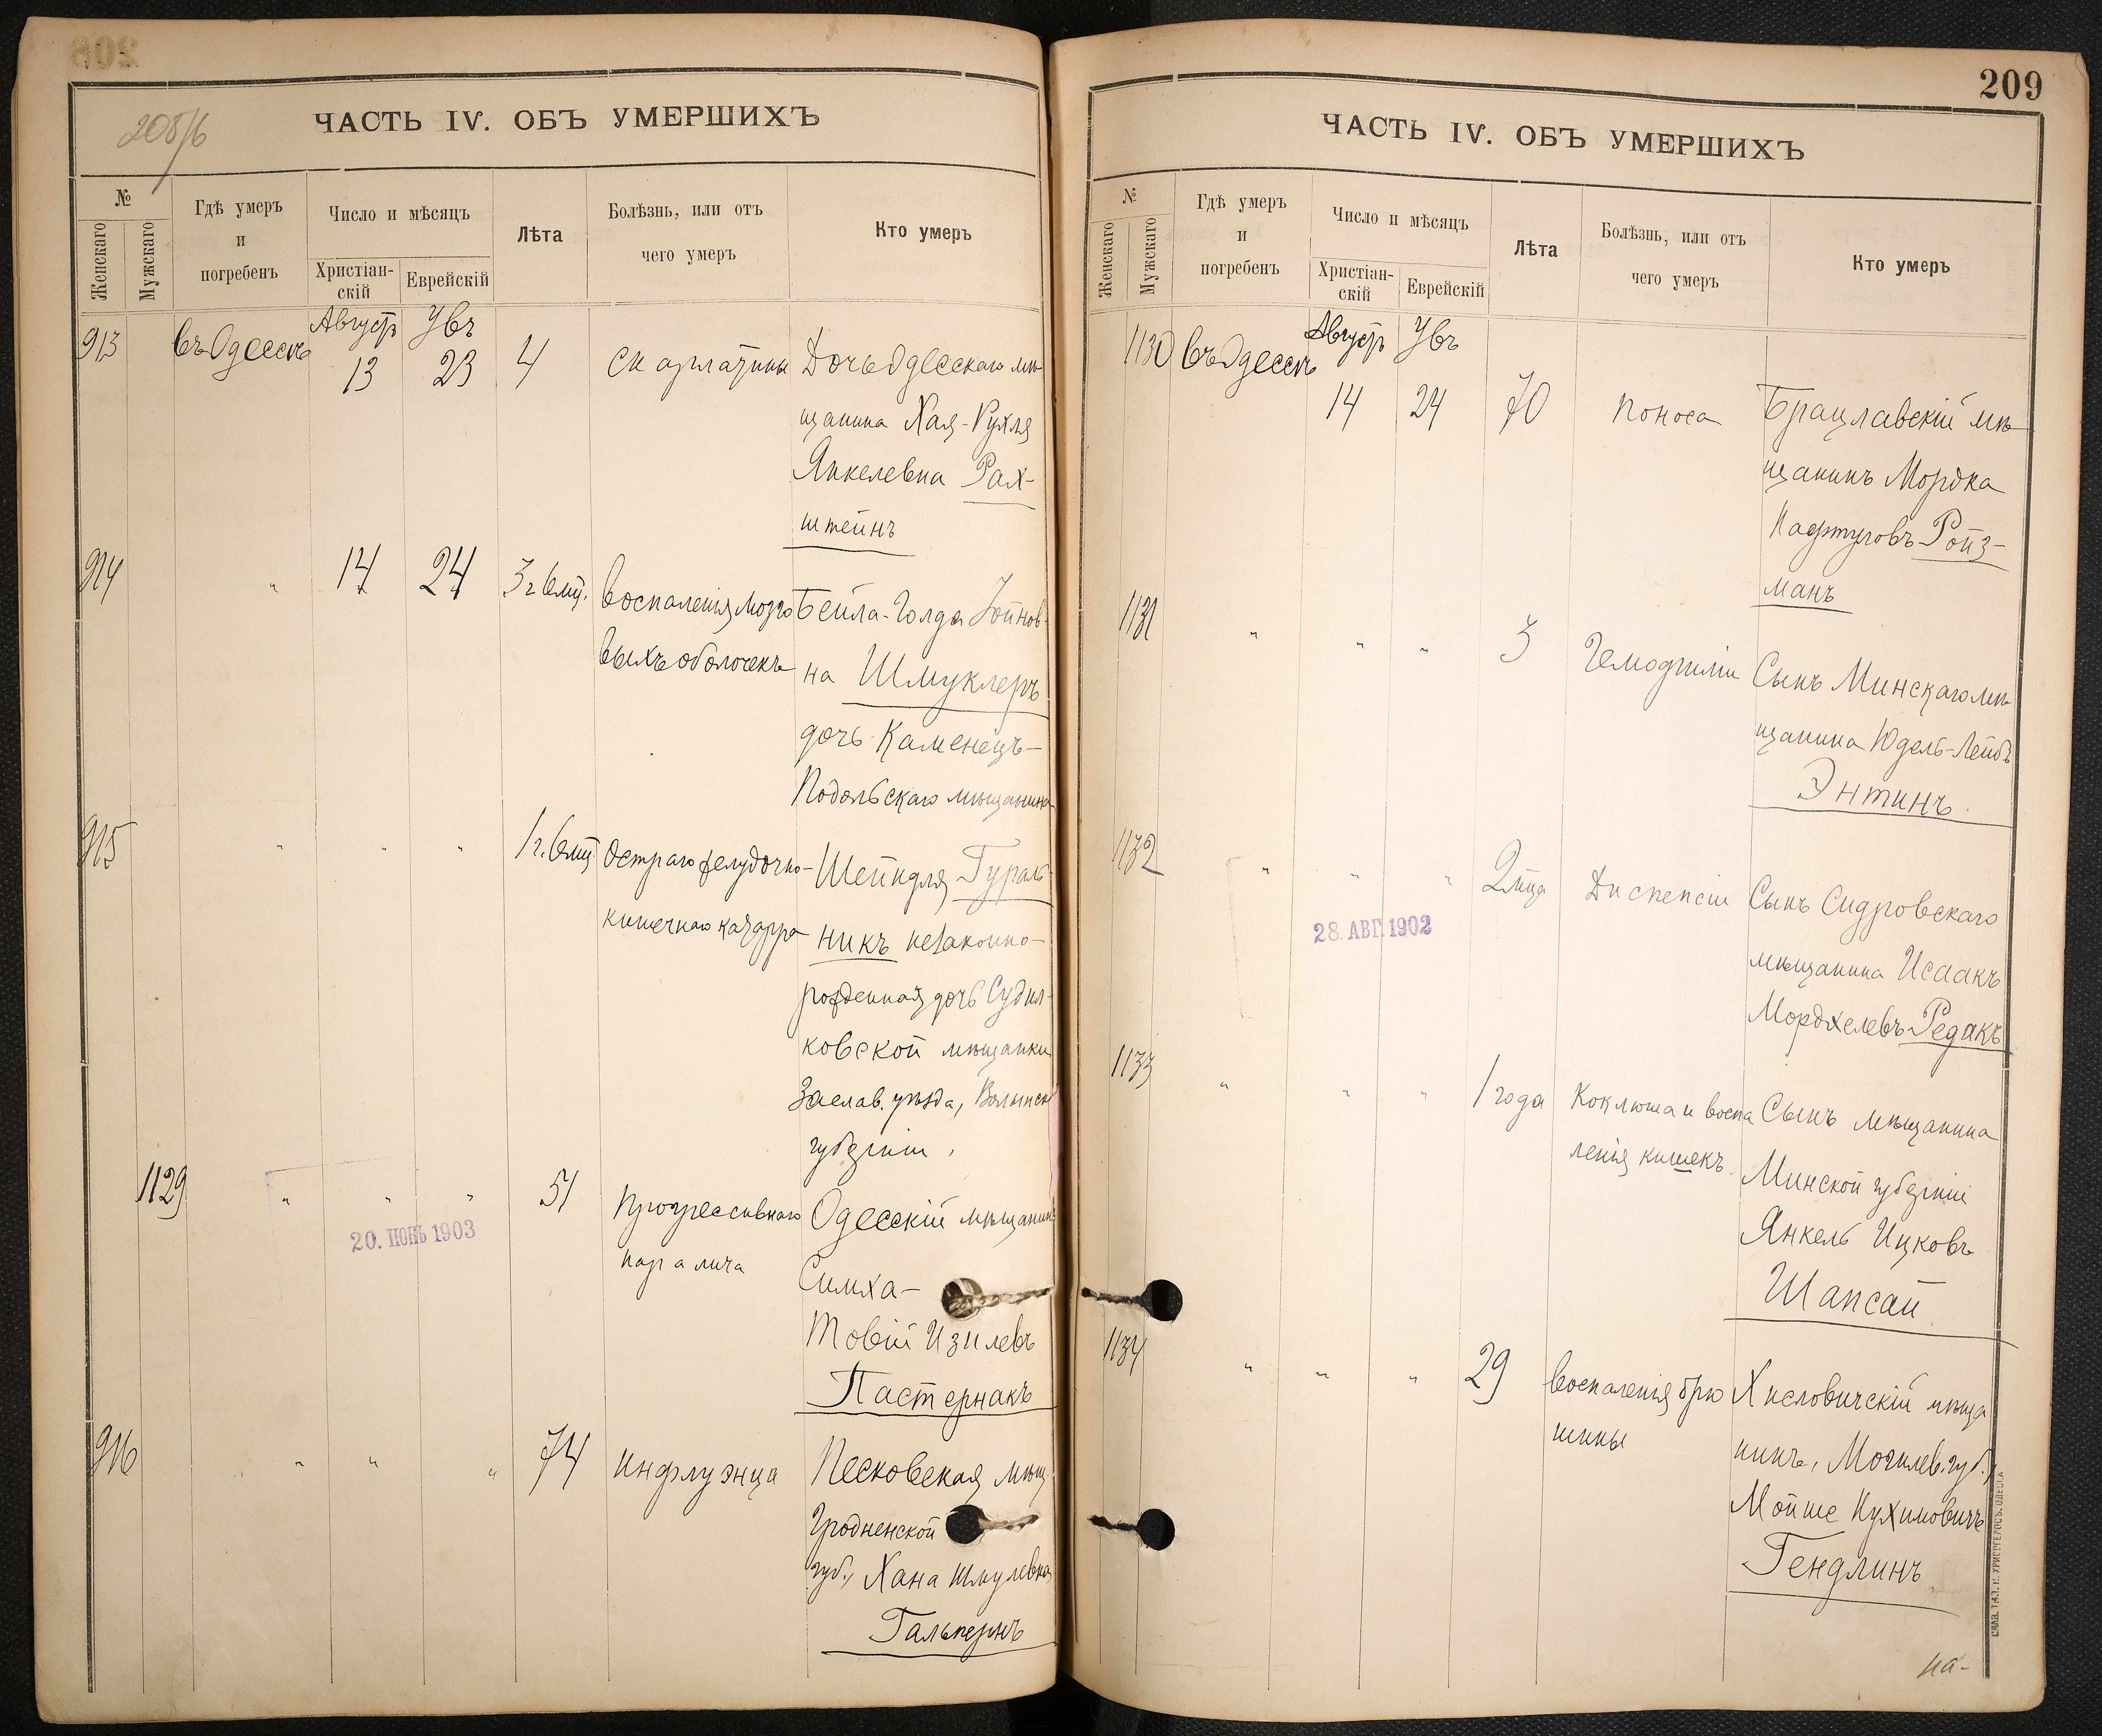 208/б
ЧАСТЬ IV. ОБЪ УМЕРШИХЪ
№
Женскаго
Мужскаго
Гдѣ умеръ
и
погребенъ
Число и мѣсяцъ
Христіан-
скій
Еврейскій
Лѣта
Болѣзнь, или отъ
чего умеръ
Кто умеръ
Августъ
913
въ Одессѣ
13
23
4
Скарлатины
Дочь Одесскаго мѣ-
щанина Хая-Рухля
Янкелевна Рах-
штейнъ
914
"
14
24
3 г. 6 мц.
Воспаленія мозго
выхъ оболочекъ
Бейла-Голда Іойнов-
на Шмуклеръ
дочь Каменецъ-
Подольскаго мѣщанина
915
"
"
"
1 г. 6 мц.
Остраго желудочно-
кишечнаго катарра
Шейндля Гураль-
никъ незаконно-
рожденная дочь Судил-
ковской мѣщанки
Заслав. уѣзда, Волынской
губерніи,
1129
"
"
"
20. ІЮНЬ 1903
51
Прогрессивнаго
паралича
Одесскій мѣщанинъ
Симха-
Товій Изилевъ
Пастернакъ
916
"
"
"
74
Инфлуэнца
Песковская мѣщ.
Гродненской
губ., Хана Шмулевна
Гальпернъ
209
ЧАСТЬ IV. ОБЪ УМЕРШИХЪ
№
Женскаго
Мужскаго
Гдѣ умеръ
и
погребенъ
Число и мѣсяцъ
Христіан-
скій
Еврейскій
Лѣта
Болѣзнь, или отъ
чего умеръ
Кто умеръ
Августъ
1130
въ Одессѣ
14
24
70
Поноса
Брацлавскій мѣ-
щанинъ Мордка
Нафтуловъ Ройз-
манъ
1131
"
"
"
3
Гемофиліи
Сынъ Минскаго мѣ-
щанина Юдель-Лейбъ
Энтинъ
1132
"
"
"
28. АВГ. 1902
2 мца
Диспепсіи
Сынъ Сидровскаго
мѣщанина Исаакъ
Мордхелевъ Редакъ
1133
"
"
"
1 года
Коклюша и воспа
ленія кишекъ
Сынъ мѣщанина
Минской губерніи
Янкель Ицковъ
Шапсай
1134
"
"
"
29
Воспаленія брю
шины
Хисловичскій мѣща
нинъ, Могилев. губ.,
Мойше Нухимовичъ
Гендлинъ
на-